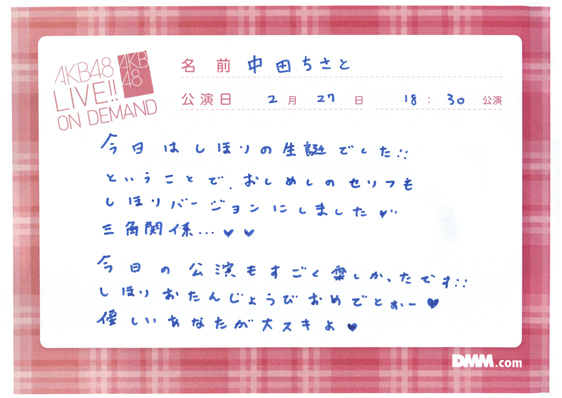 AKB48
LIVE!!
ON DEMAND
AKB
48
名 前 中田ちさと
公演日 2月 27日 18:30 公演
今日はしほりの生誕でした!!
ということで、おしめしのセリフも
しほりバージョンにしました♥
三角関係…♥♥
今日の公演もすごく楽しかったです!!
しほりおたんじょうびおめでとぉー♥
優しいあなたが大スキよ♥
DMM.com